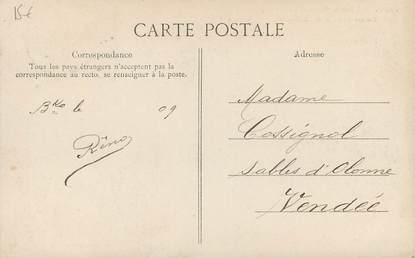 15€
CARTE POSTALE
Correspondance
Tous les pays étrangers n'acceptent pas la
correspondance au recto, se renseigner à la poste.
le 09
Réno
Adresse
Madame
Cossignol
Sables d'Olonne
Vendée